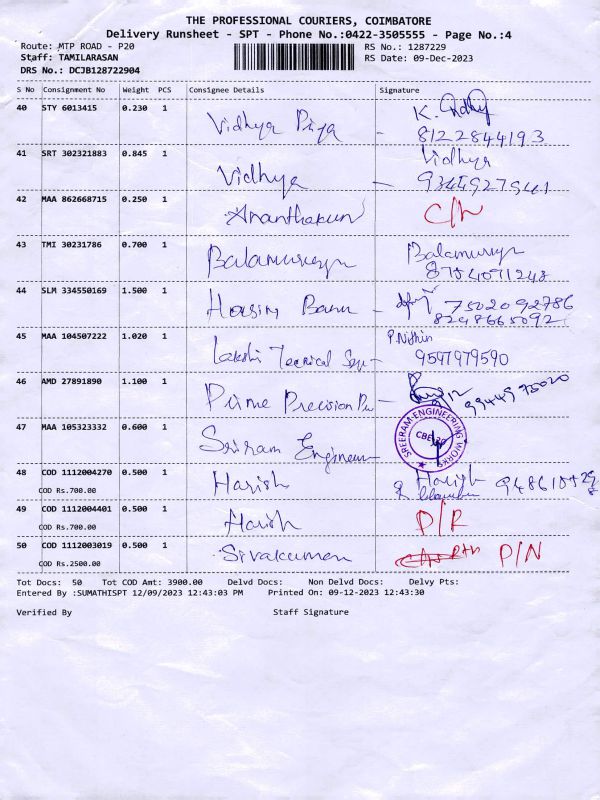 THE PROFESSIONAL COURIERS, COIMBATORE
Delivery Runsheet - SPT - Phone No.:0422-3505555 - Page No.:4
Route: MTP ROAD - P20 RS No.: 1287229
Staff: TAMILARASAN RS Date: 09-Dec-2023
DRS No.: DCJB128722904
S No Consignment No Weight PCS Consignee Details Signature
40 STY 6013415 0.230 1 Vidhya Priya - K.
8122844193
41 SRT 302321883 0.845 1 Vidhya - Vidhya
9344927941
42 MAA 862668715 0.250 1 Ananthakum C/N
43 TMI 30231786 0.700 1 Balamurugn Balamurugn
8754091248
44 SLM 334550169 1.500 1 Housing Bann - 7502092786
8248665092
45 MAA 104507222 1.020 1 Lakshi Tecnical Sys - P. Nithin
9597979590
46 AMD 27891890 1.100 1 Prime Precision Pu - 9944975020
47 MAA 105323332 0.600 1 Sriram Engineern SREERAM ENGINEERING WORKS
CBE-20
48 COD 1112004270 0.500 1 Harish Harish
COD Rs.700.00
49 COD 1112004401 0.500 1 Harish P/R
COD Rs.700.00
50 COD 1112003019 0.500 1 Sivakumar P/N
COD Rs.2500.00
Tot Docs: 50 Tot COD Amt: 3900.00 Delvd Docs: Non Delvd Docs: Delvy Pts:
Entered By :SUMATHISPT 12/09/2023 12:43:03 PM Printed On: 09-12-2023 12:43:30
Verified By Staff Signature